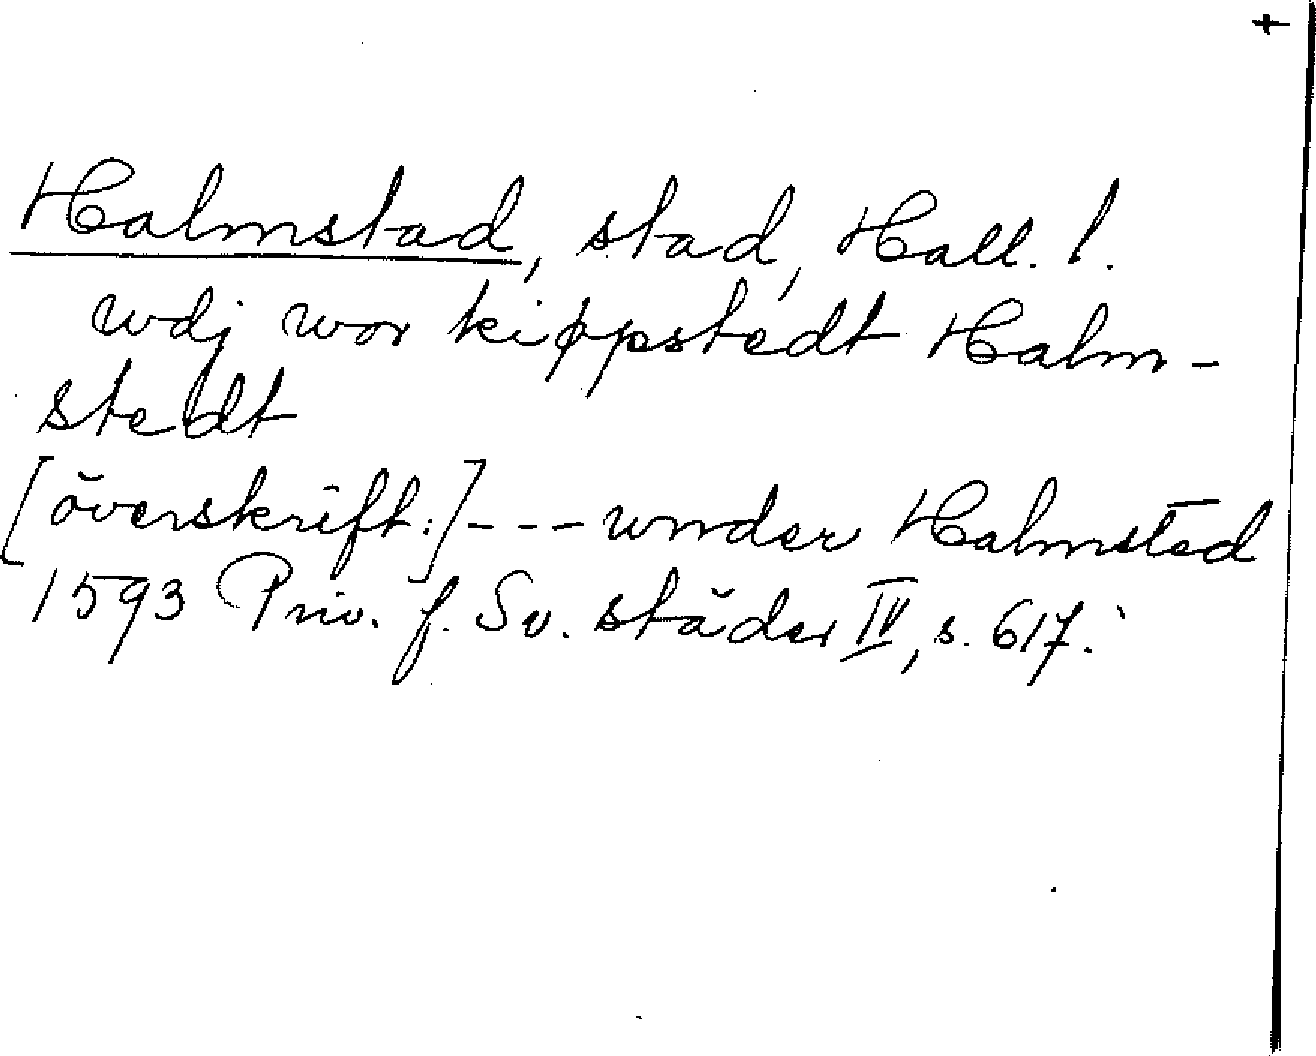 +
Halmstad, stad, Hall. l.
wdj wor kippstedt Halm-
stedt
[överskrift:] - - - wnder Halmsted
1593 Priv. f. Sv. städer IV, s. 617.